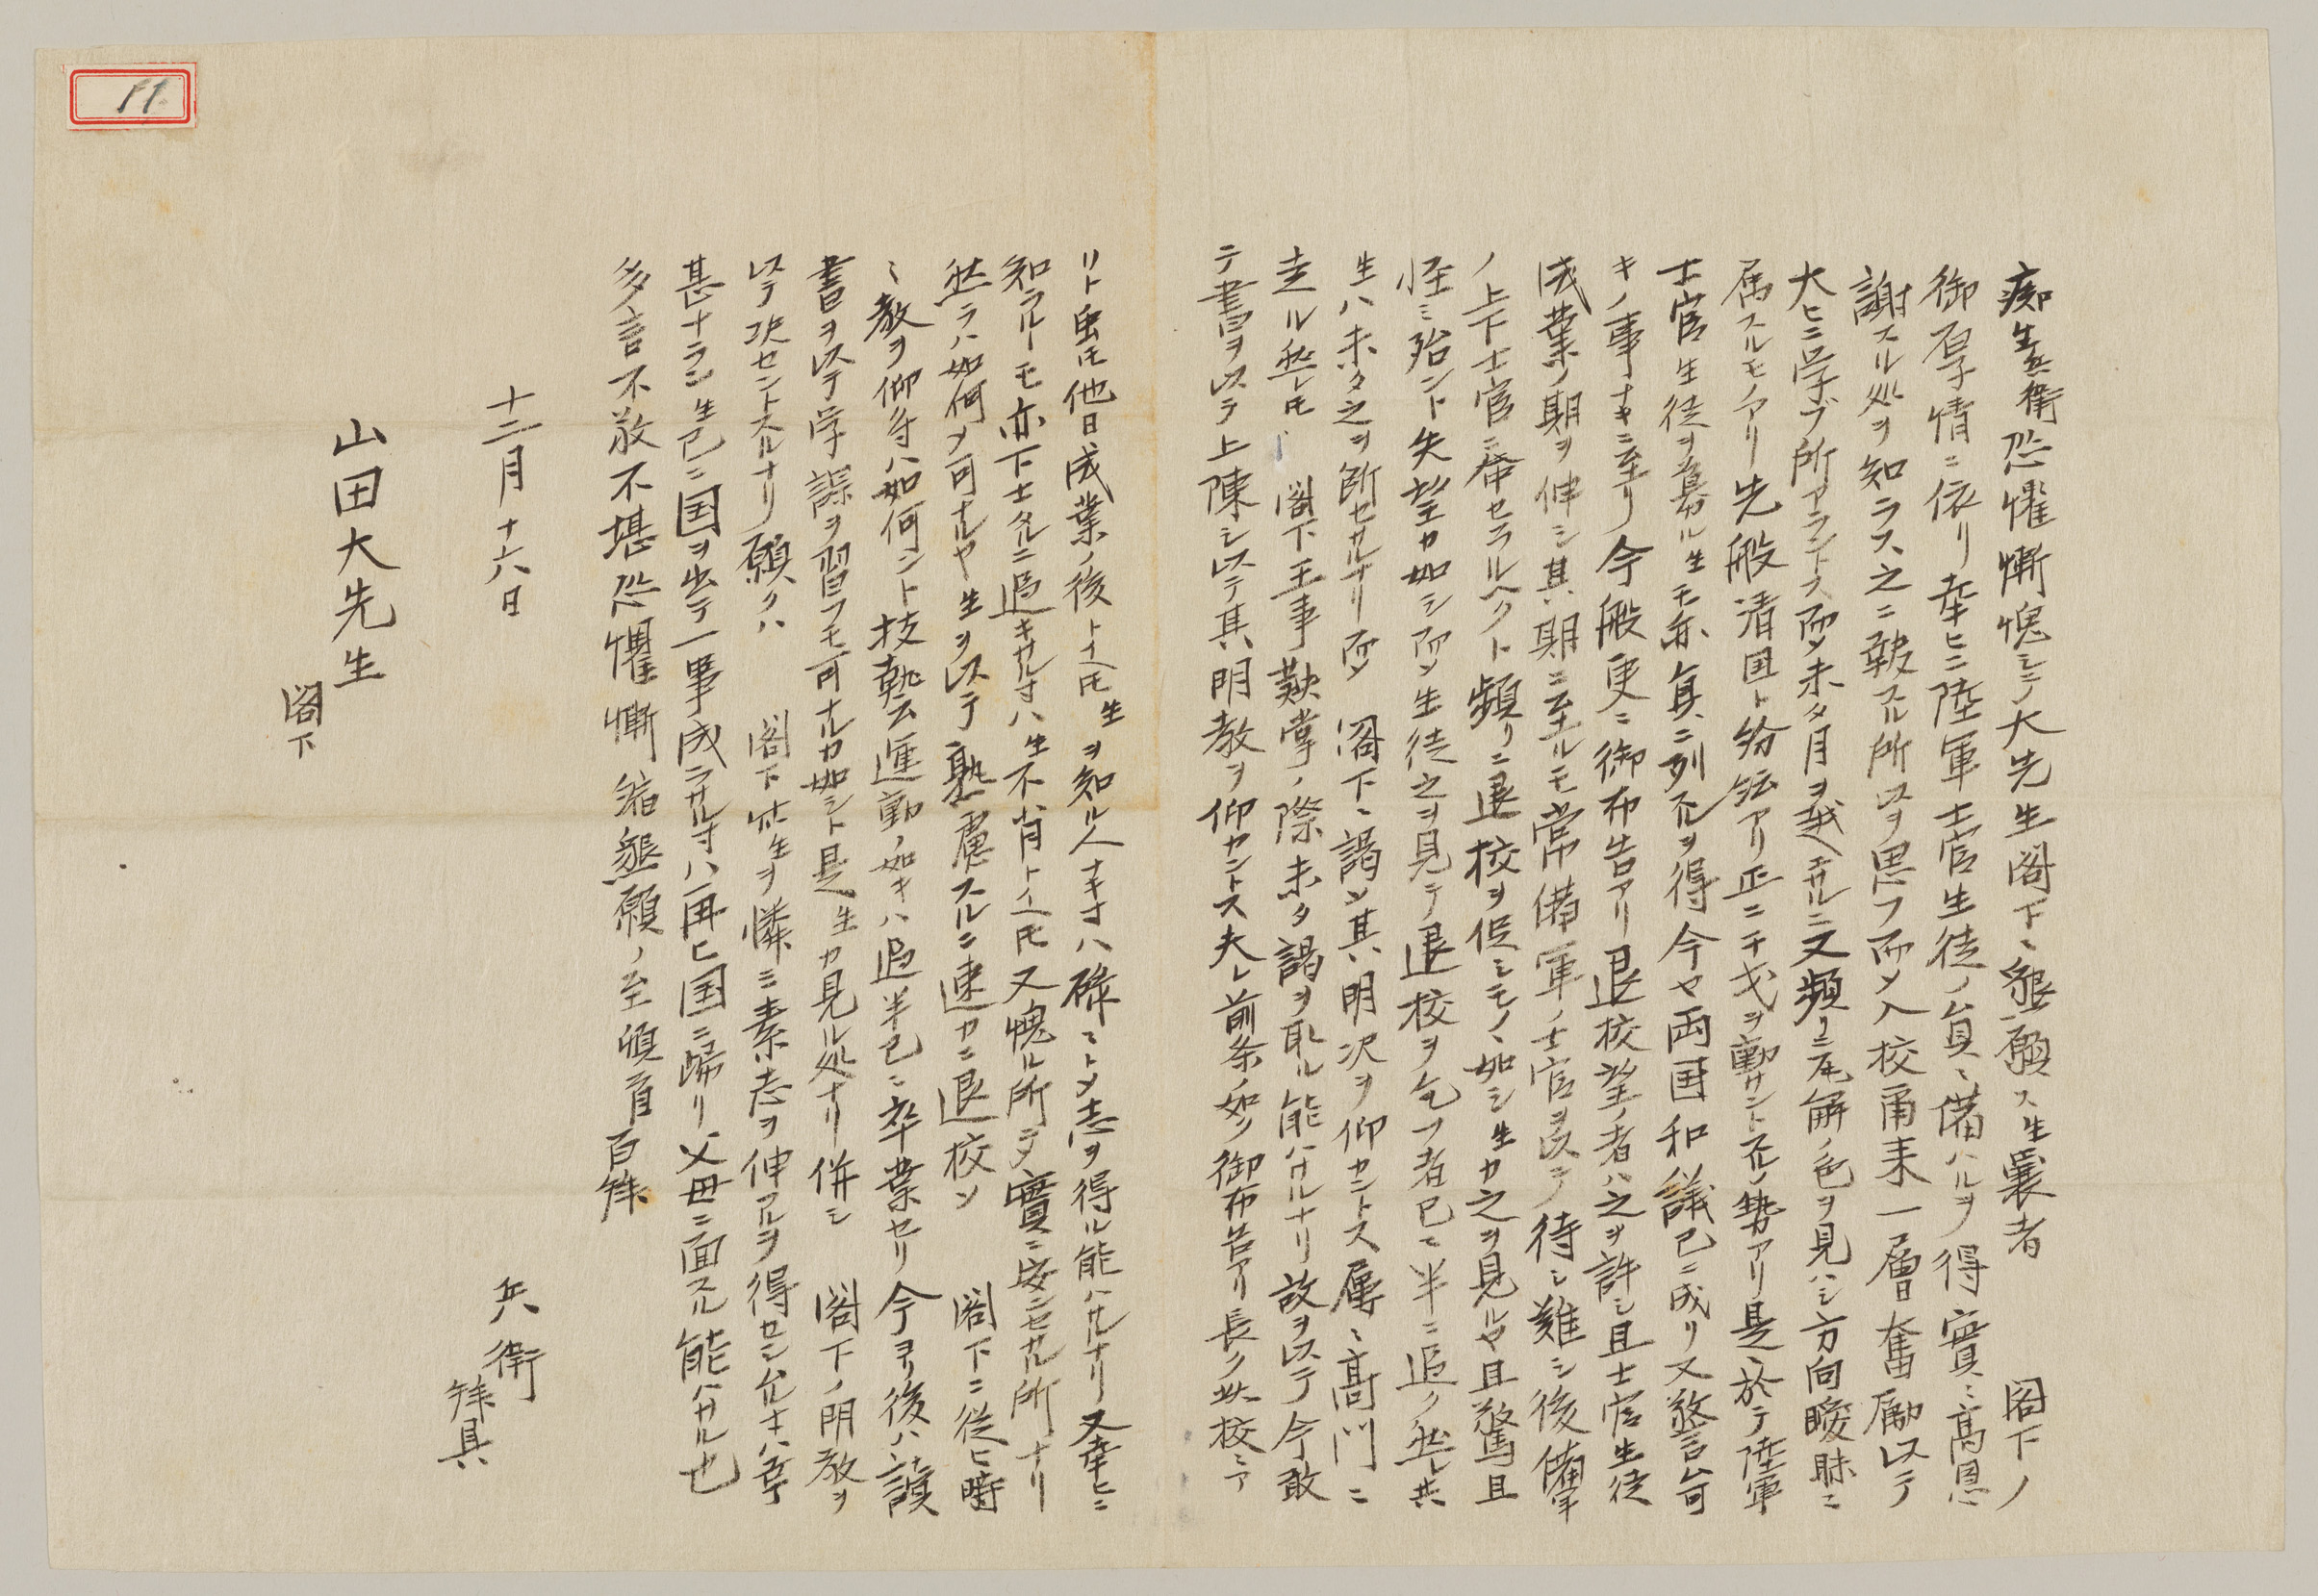 痴生兵衛恐懼慚愧シテ大先生閣下ニ懇願ス生曩者　閣下ノ
御厚情ニ依リ幸ヒニ陸軍士官生徒ノ員ニ備ハルヲ得實ニ高恩
謝スル処ヲ知ラス之ニ報スル所以ヲ思フ而〆入校甬来一層奮励以テ
大ヒニ学ブ所アラントス而〆未タ月ヲ越エサルニ又頻リニ瓦解ノ色ヲ見ハシ方向曖昧ニ
属スルモノアリ先般清国ト紛紜アリ正ニ干戈ヲ動サントスルノ勢アリ是ニ於テ陸軍
士官生徒ヲ募ル生モ亦員ニ列スルヲ得今ヤ両国和議已ニ成リ又警可
キノ事ナキニ至リ今般更ニ御布告アリ退校望ノ者ハ之ヲ許シ且士官生徒
成業ノ期ヲ伸シ其期ニ至ルモ常備軍ノ士官ヲ以テ待シ難シ後備軍
ノ上下士官ニ奉セラルヘクト頻リニ退校ヲ促シモノヽ如シ生カ之ヲ見ルヤ且驚且
怪ミ殆ント失望カ如シ而〆生徒之ヲ見テ退校ヲ乞フ者已ニ半ニ追ク然レ共
生ハ未タ之ヲ断セサルナリ而〆　閣下ニ謁シ其明決ヲ仰カントス屢ニ高門ニ
走ル然レ𪜈　閣下王事鞅掌ノ際未タ謁ヲ取ル能ハサルナリ故ヲ以テ今敢
テ書ヲ以テ上陳シ以テ其明教ヲ仰カントス夫レ前条ノ如ク御布告アリ長ク此校ニア
リト虽𪜈他日成業ノ後ト人𪜈生ヲ知ル人ナキ寸ハ碌々ト〆志ヲ得ル能ハサルナリ又幸ヒニ
知ラルヽモ亦下士タルニ過キサル寸ハ生不肖ト人𪜈又愧ル所ニテ實ニ安ンセサル所ナリ
然ラハ如何ヲ可ナルヤ生ヲ以テ熟慮スルニ速カニ退校シ　閣下ニ従ヒ時
々教ヲ仰寸ハ如何ント技藝運動ノ如キハ過半已ニ卒業セリ今ヨリ後ハ讀
書ヲ以テ学課ヲ習フモ可ナルカ如シト是レ生カ見ル処ナリ併シ　閣下ノ明教ヲ
以テ决セントスルナリ願クハ　閣下此生ヲ憐ミ素志ヲ伸フルヲ得セシ允ナハ幸
甚ナラン生已ニ国ヲ出テ一事成ラサル寸ハ再ヒ国ニ歸リ父母ニ面スル能ハサル也
多言不敬不堪恐懼慚縮懇願ノ至頓首百拜
十二月十六日
兵衛
拜具
山田大先生
閣下
11.